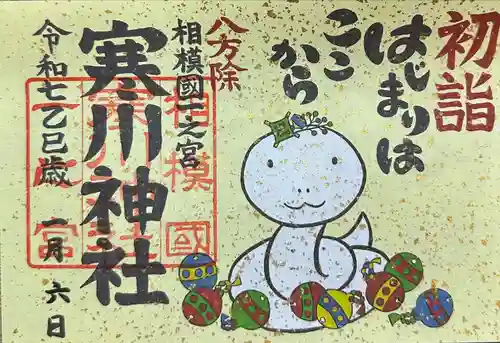 初詣
はじまりは
ここ
から
八方除
相模國一之宮
寒川神社
相模國
一之宮
令和七乙巳歳 一月 六日